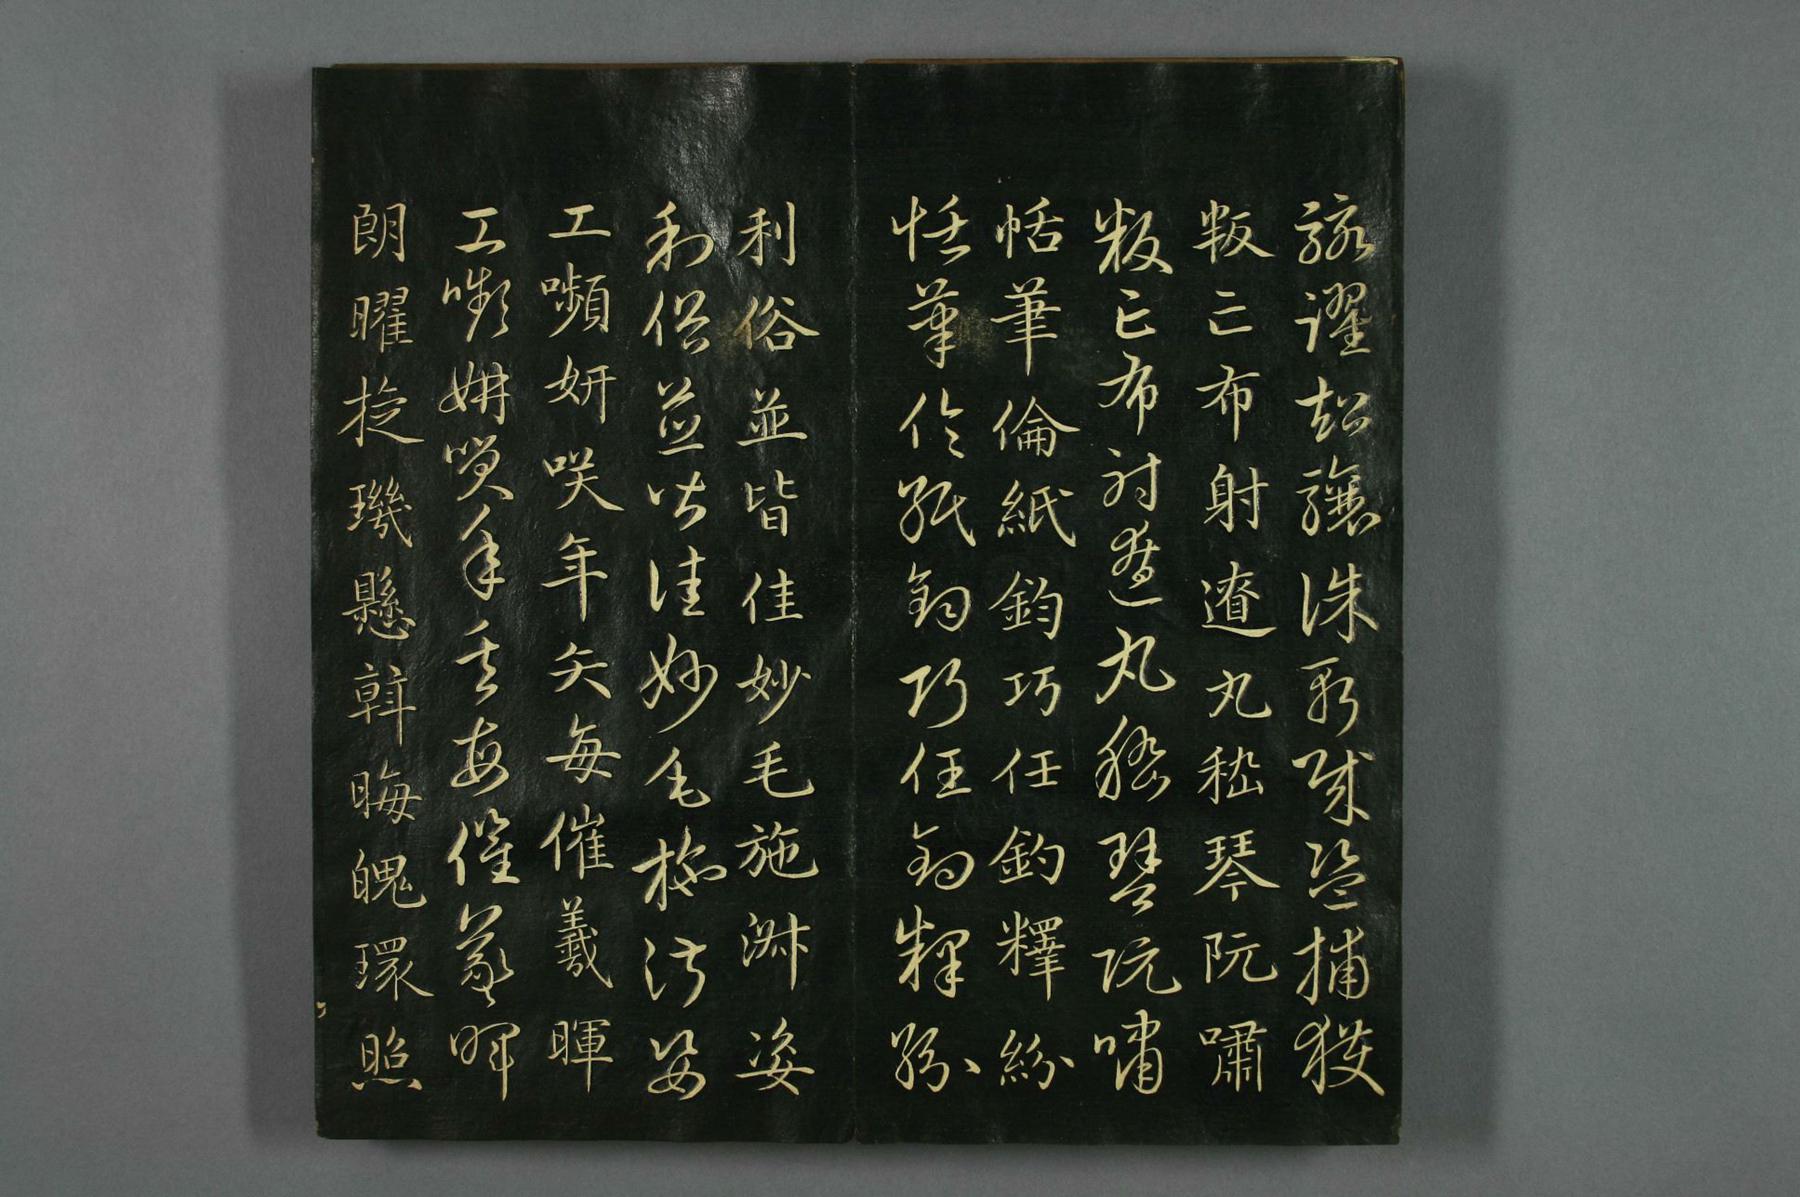 駭躍超驤誅斬賊盜捕獲
叛亡布射遼丸嵇琴阮嘯
叛亡布射遼丸嵇琴阮嘯
恬筆倫紙鈞巧任釣釋紛
恬筆倫紙鈞巧任釣釋紛
利俗並皆佳妙毛施淑姿
利俗並皆佳妙毛施淑姿
工嚬妍咲年矢每催羲暉
工嚬妍笑年矢每催羲暉
朗曜旋璣懸斡晦魄環照